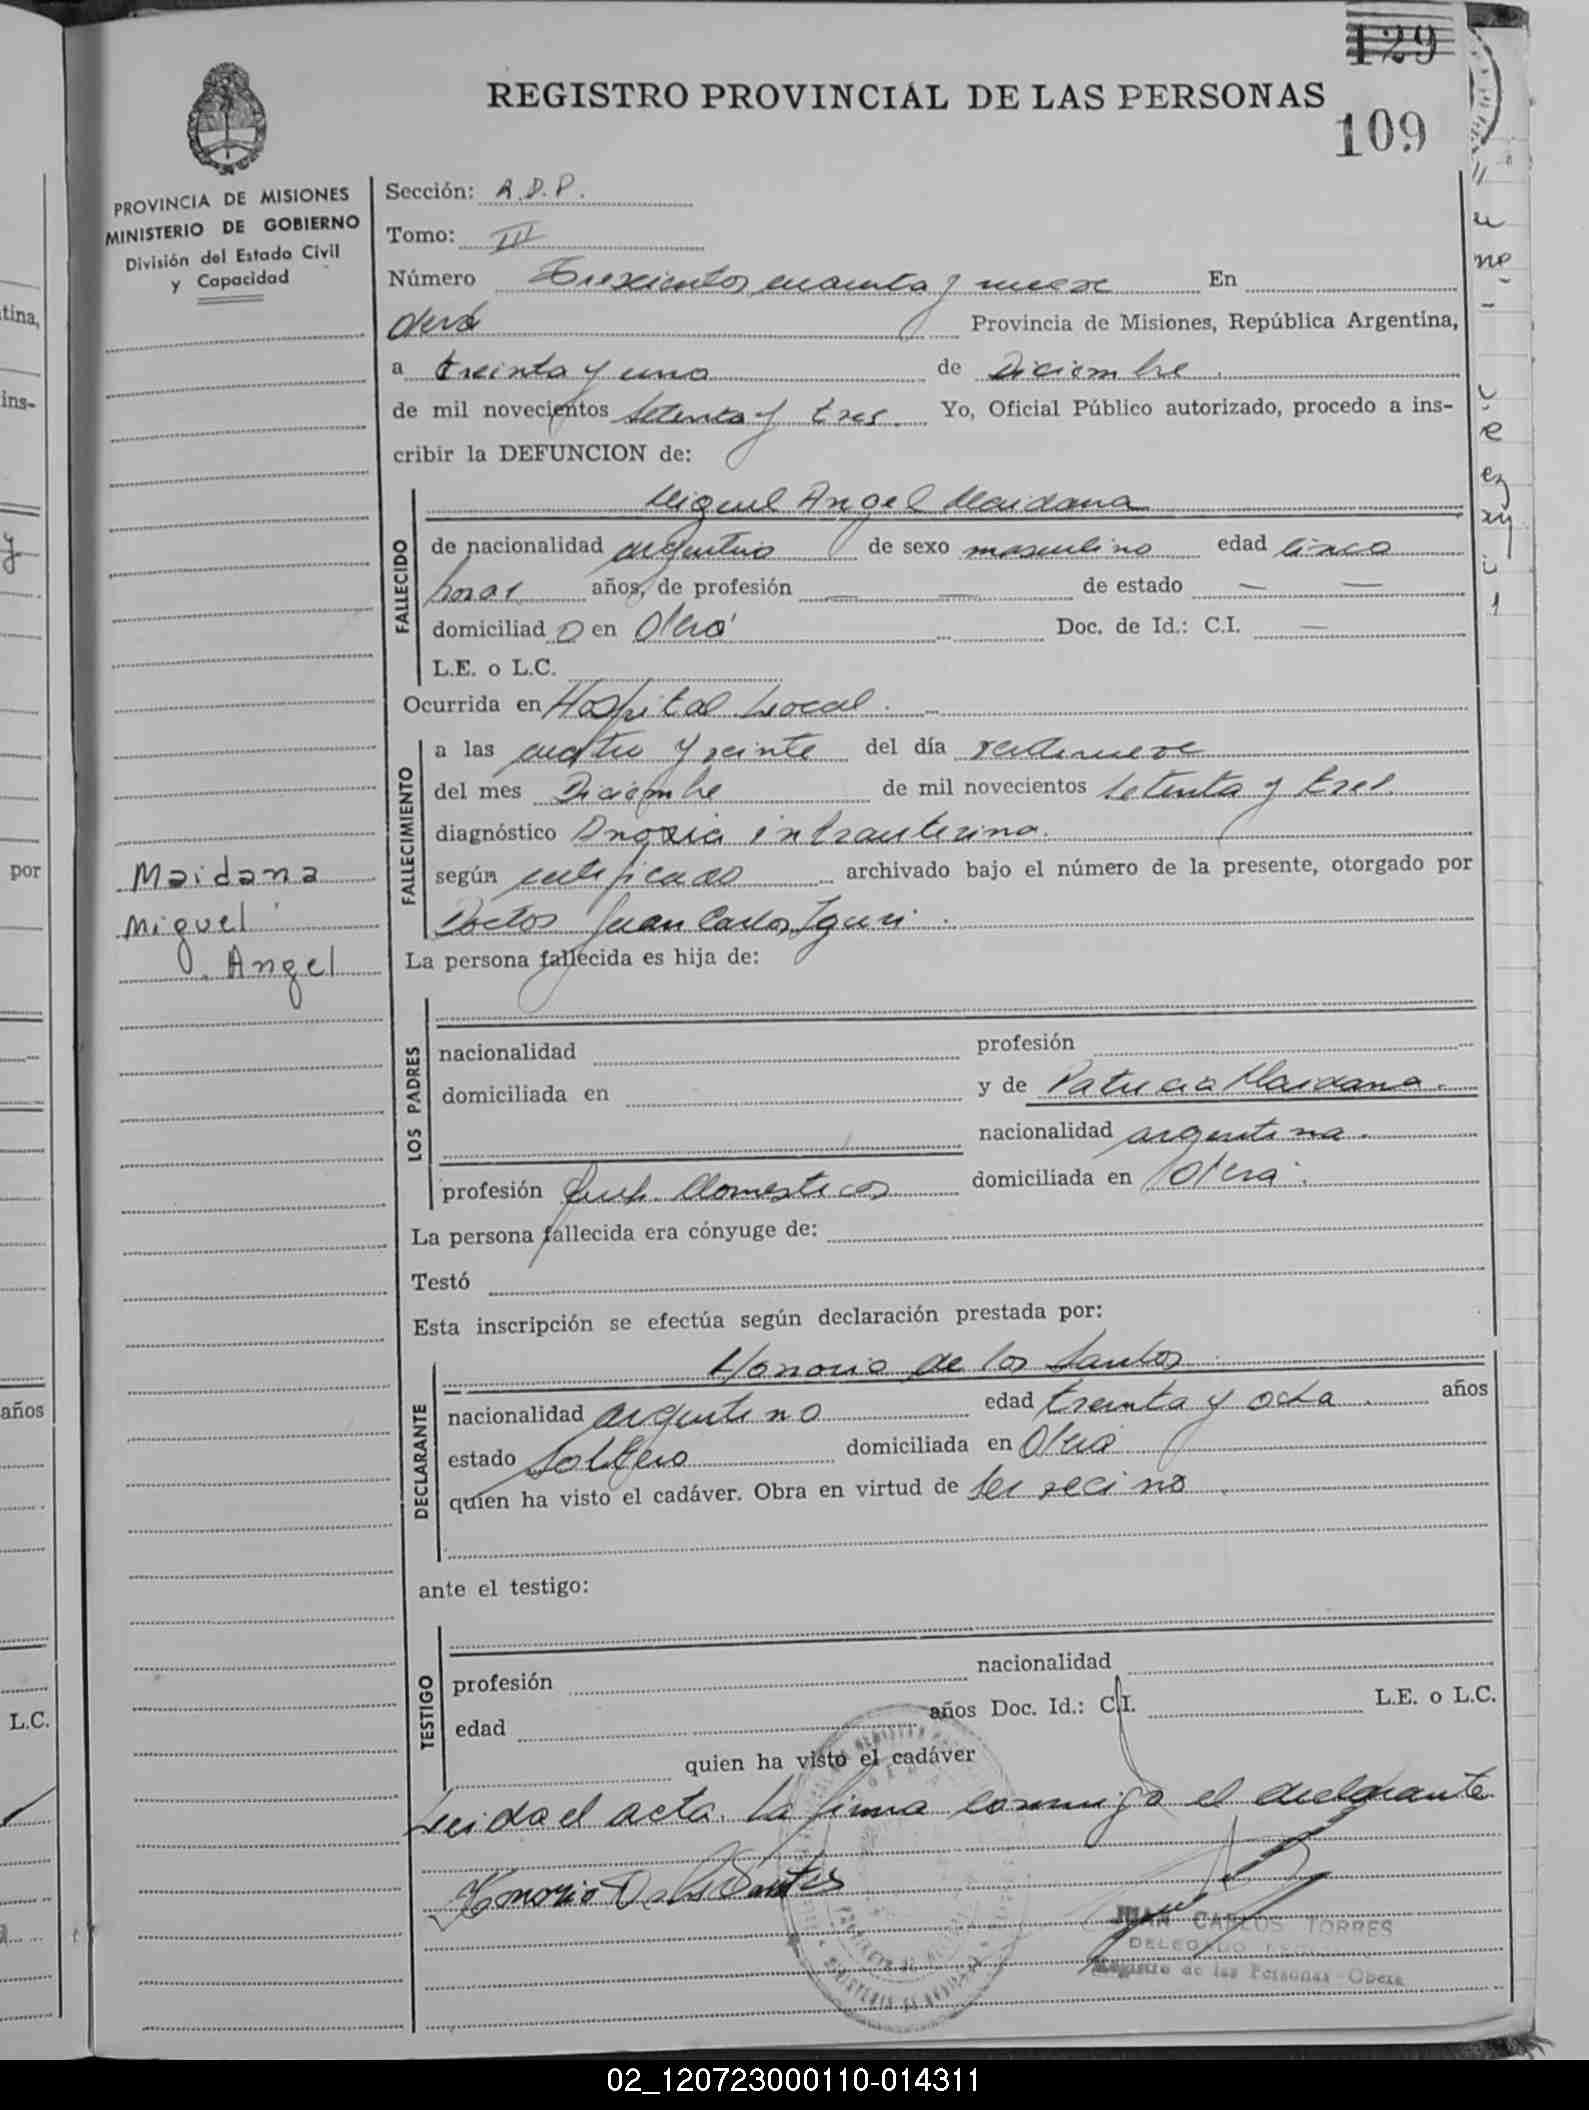 129
REGISTRO PROVINCIAL DE LAS PERSONAS
109
PROVINCIA DE MISIONES
MINISTERIO DE GOBIERNO
División del Estado Civil
y Capacidad
Sección: A.D.P.
Tomo: III
Número Trescientos cuarenta y nueve En
Oberá Provincia de Misiones, República Argentina,
a treinta y uno de Diciembre
de mil novecientos setenta y tres. Yo, Oficial Público autorizado, procedo a ins-
cribir la DEFUNCION de:
FALLECIDO
Miguel Angel Maidana
de nacionalidad argentino de sexo masculino edad cinco
horas años, de profesión — — de estado — —
domiciliad o en Oberá Doc. de Id.: C.I. —
L.E. o L.C.
Ocurrida en Hospital Local.
FALLECIMIENTO
a las cuatro y veinte del día veintinueve
del mes Diciembre de mil novecientos setenta y tres.
diagnóstico Anoxia intrauterina.
según certificado archivado bajo el número de la presente, otorgado por
Doctor Juan Carlos
Maidana
Miguel
Angel
La persona fallecida es hija de:
LOS PADRES
nacionalidad profesión
domiciliada en y de Patricia Maidana.
nacionalidad argentina.
profesión Queh. Domesticos domiciliada en Oberá.
La persona fallecida era cónyuge de:
Testó
Esta inscripción se efectúa según declaración prestada por:
DECLARANTE
Honorio de los Santos
nacionalidad argentino edad treinta y ocho años
estado Soltero domiciliada en Oberá
quien ha visto el cadáver. Obra en virtud de ser vecino
ante el testigo:
TESTIGO
profesión nacionalidad
edad años Doc. Id.: C.I. L.E. o L.C.
quien ha visto el cadáver
Leida el acta. La firma conmigo el declarante
Honorio De los Santos
JUAN CARLOS TORRES
DELEGADO
Registro de las Personas - Oberá
tina,
ins-
y
por
años
L.C.
02_120723000110-014311